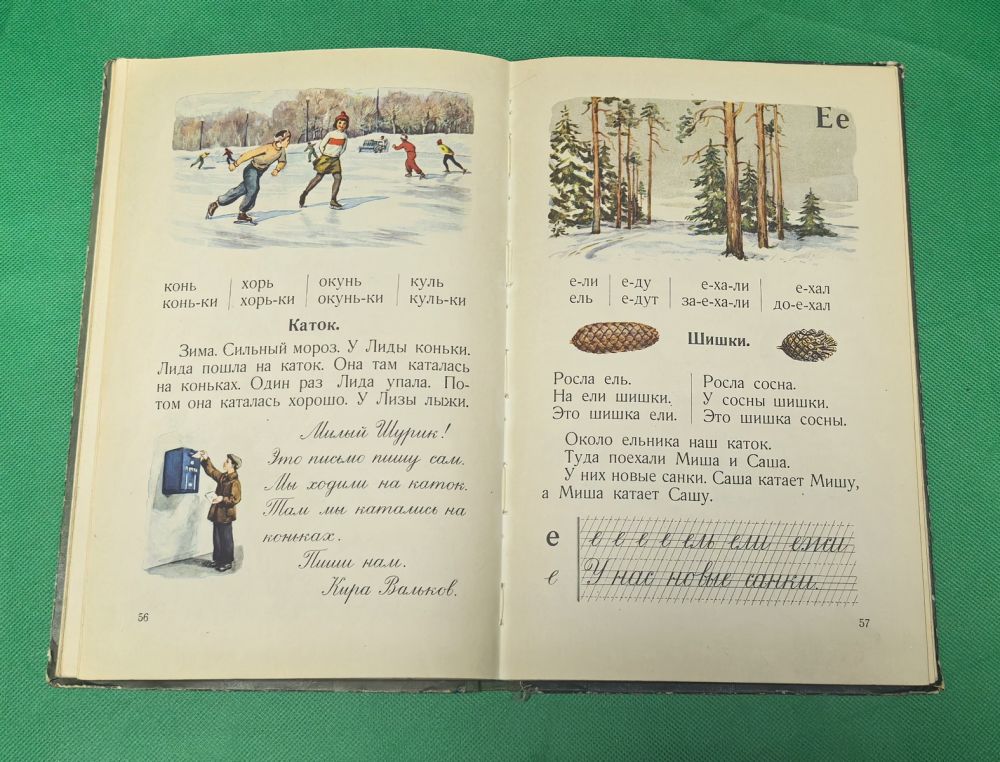 конь хорь окунь куль
конь-ки хорь-ки окунь-ки куль-ки
Каток.
Зима. Сильный мороз. У Лиды коньки.
Лида пошла на каток. Она там каталась
на коньках. Один раз Лида упала. По-
том она каталась хорошо. У Лизы лыжи.
Милый Шурик!
Это письмо пишу сам.
Мы ходили на каток.
Там мы катались на
коньках.
Пиши нам.
Кира Вальков.
56
Ее
е-ли е-ду е-ха-ли е-хал
ель е-дут за-е-ха-ли до-е-хал
Шишки.
Росла ель.
На ели шишки.
Это шишка ели.
Росла сосна.
У сосны шишки.
Это шишка сосны.
Около ельника наш каток.
Туда поехали Миша и Саша.
У них новые санки. Саша катает Мишу,
а Миша катает Сашу.
е е е е е ель ели ежи
е У нас новые санки.
57